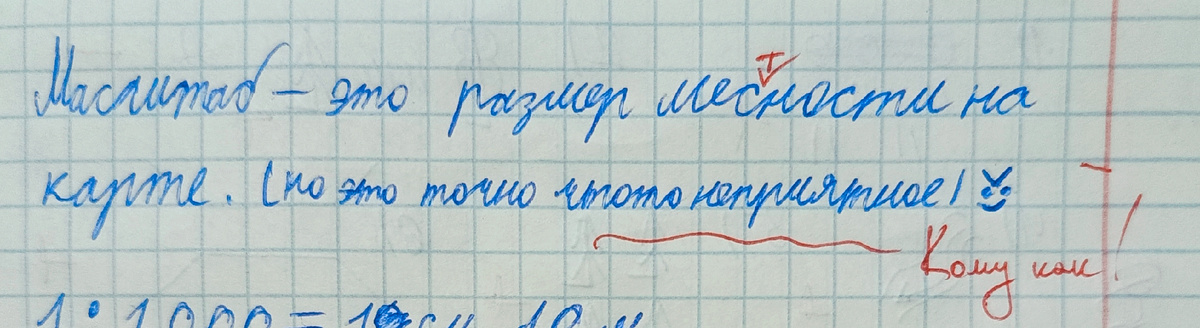 Масштаб – это размер месности на
т
карте. (но это точно чтото неприятное)
Кому как!
1:1000 = 10 м